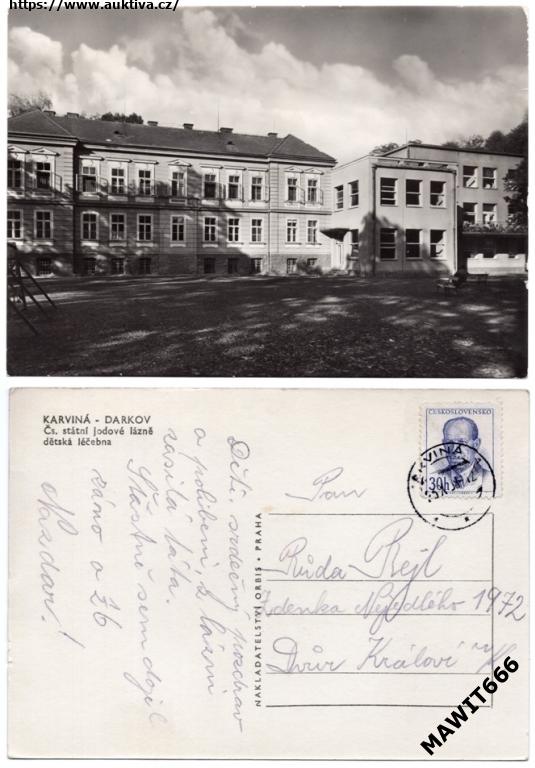 https://www.auktiva.cz/
KARVINÁ - DARKOV
Čs. státní jodové lázně
dětská léčebna
Děti, srdečný pozdrav
a políbení z lázní
zasílá táta.
Šťastně sem dojel
ráno o 26
Nazdar!
NAKLADATELSTVÍ ORBIS • PRAHA
ČESKOSLOVENSKO
30h
KARVINÁ
1
Pan
Rúda Rejl
Zdenka Nejedlého 1972
Dvůr Králové n/L
MAWIT666